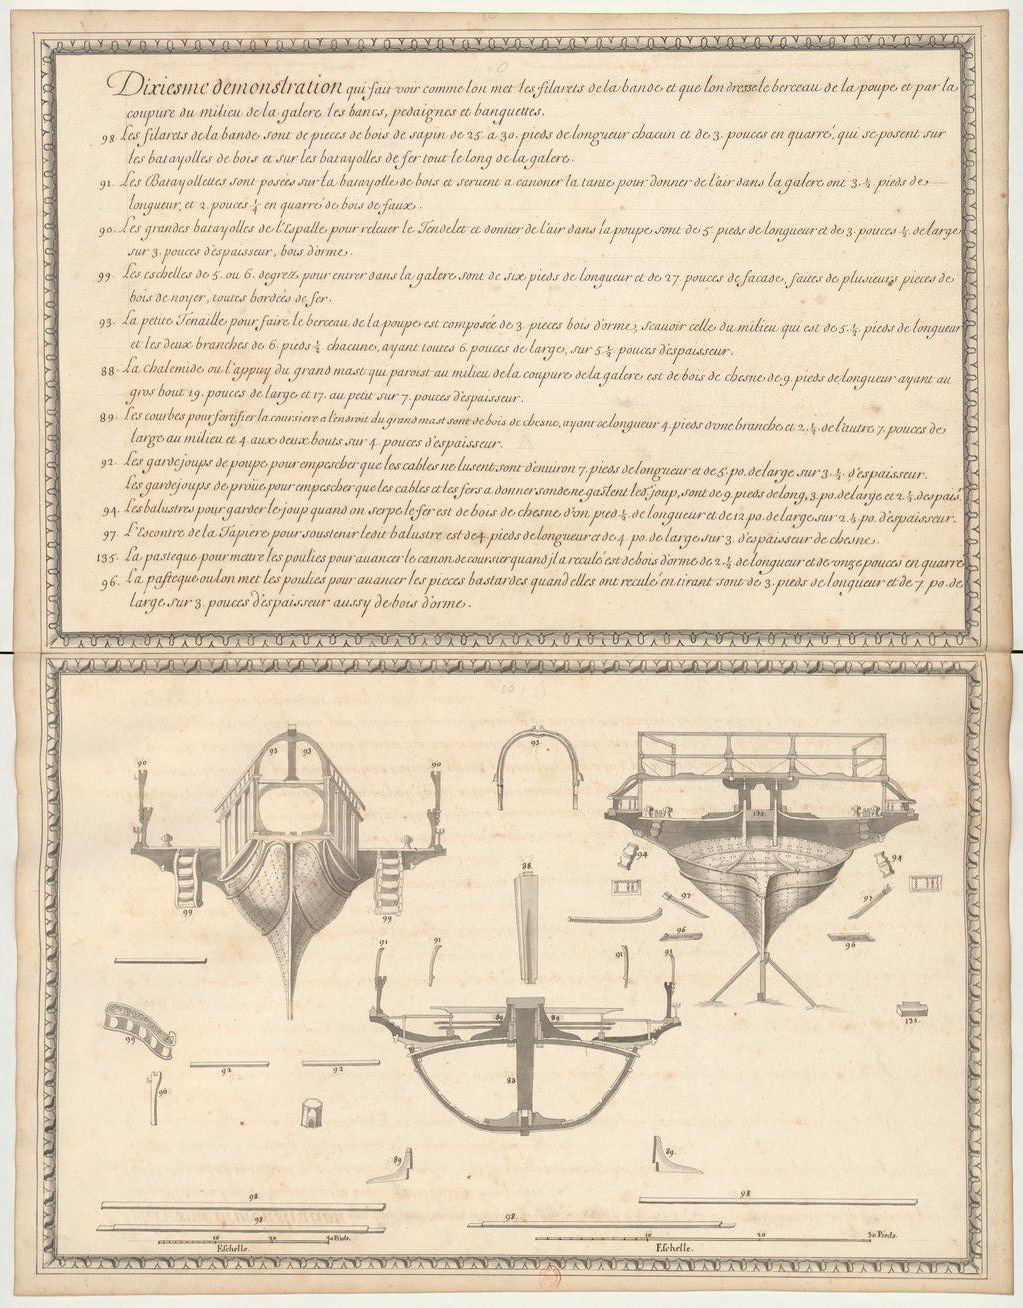 Dixiesme demonstration qui fait voir comme lon met les filarets de la bande et que lon dresse le berceau de la poupe et par la
coupure du milieu de la galere les bancs, pedaignes et banquettes.
98 Les filarets de la bande sont de pieces de bois de sapin de 25. a 30. pieds de longueur chacun et de 3. pouces en quarré, qui se posent sur
les batayolles de bois et sur les batayolles de fer tout le long de la galere.
91. Les Batayollettes sont posées sur la batayolle de bois et seruent a canoner la tante pour donner de l'air dans la galere ont 3. ½ pieds de
longueur, et 2. pouces ¼ en quarré de bois de faux.
90. Les grandes batayolles de l'Espalle pour releuer le Tendelet et donner de l'air dans la poupe sont de 5. pieds de longueur et de 3. pouces ½ de large
sur 3. pouces d'espaisseur, bois d'orme.
99. Les eschelles de 5. ou 6. degrez pour entrer dans la galere sont de six pieds de longueur et de 27. pouces de facade, faites de plusieurs pieces de
bois de noyer, toutes bordées de fer.
93. La petite Tenaille pour faire le berceau de la poupe est composée de 3. pieces bois d'orme, scauoir celle du milieu qui est de 5. ½ pieds de longueur
et les deux branches de 6. pieds ½ chacune, ayant toutes 6. pouces de large, sur 5. ½ pouces d'espaisseur.
88. La chalemide ou l'appuy du grand mast qui paroist au milieu de la coupure de la galere est de bois de chesne de 9. pieds de longueur ayant au
gros bout 19. pouces de large et 17. au petit sur 7. pouces d'espaisseur.
89. Les courbes pour fortifier la coursiere a l'endroit du grand mast sont de bois de chesne, ayant de longueur 4. pieds d'une branche et 2. ½ de l'autre 7. pouces de
large au milieu et 4. aux deux bouts sur 4. pouces d'espaisseur.
92. Les gardejoups de poupe pour empescher que les cables ne l'usent sont d'enuiron 7. pieds de longueur et de 5. po. de large sur 3. ½ d'espaisseur.
Les gardejoups de proüe pour empescher que les cables et les fers a donner fonde ne gastent led. joup, sont de 9. pieds de long, 3. po. de large et 2. ½ despais.
94. Les balustres pour garder le joup quand on serpe le fer est de bois de chesne d'un pied ½ de longueur et de 12 po. de large sur 2. ½ po. d'espaisseur.
97. L'Escontre de la Tapiere pour soustenir ledit balustre est de 4. pieds de longueur et de 4. po. de large sur 3. d'espaisseur de chesne.
135. La pasteque pour mettre les poulies pour auancer le canon de coursier quand jl a reculé est de bois d'orme de 2. ½ de longueur et de onze pouces en quarré
96. La pasteque ou lon met les poulies pour auancer les pieces bastardes quand elles ont reculé en tirant sont de 3. pieds de longueur et de 7. po. de
large sur 3. pouces d'espaisseur aussy de bois d'orme.
93 93
93.
90 90
135.
94 94
88.
99 99
97 97
96 96
91 91
91 91
89 89
135.
99
92 92
88
90
89 89.
98. 98
98 98
10 20 30 Pieds.
10 20 30 Pieds.
Eschelle. Eschelle.